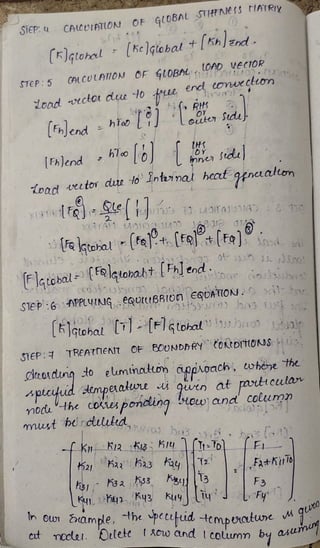 STEP:4 CALCULATION OF GLOBAL STIFFNESS MATRIX
[K]Global = [Kc]global + [Kh]end.
STEP:5 CALCULATION OF GLOBAL LOAD VECTOR
Load vector due to free end convection
[Fh]end = hT∞ [0 1] [RHS or outer side]
[Fh]end = hT∞ [1 0] [LHS or inner side]
Load vector due to Internal heat generation
[FQ] = Qle/2 [1 1]
[FQ]global = [FQ]① + [FQ]② + [FQ]③
[F]global = [FQ]global + [Fh]end.
STEP:6 APPLYING EQUILIBRIUM EQUATION.
[K]Global [T] = [F]Global
STEP:7 TREATMENT OF BOUNDARY CONDITIONS
According to elimination approach, where the
specified temperature is given at particular
node the corresponding row and column
must be deleted.
K11 K12 K13 K14 T1=T0 F1
K21 K22 K23 K24 T2 = F2+K11T0
K31 K32 K33 K34 T3 F3
K41 K42 K43 K44 T4 F4
In our Example, the specified temperature is given
at node1. Delete 1 row and 1 column by assuming